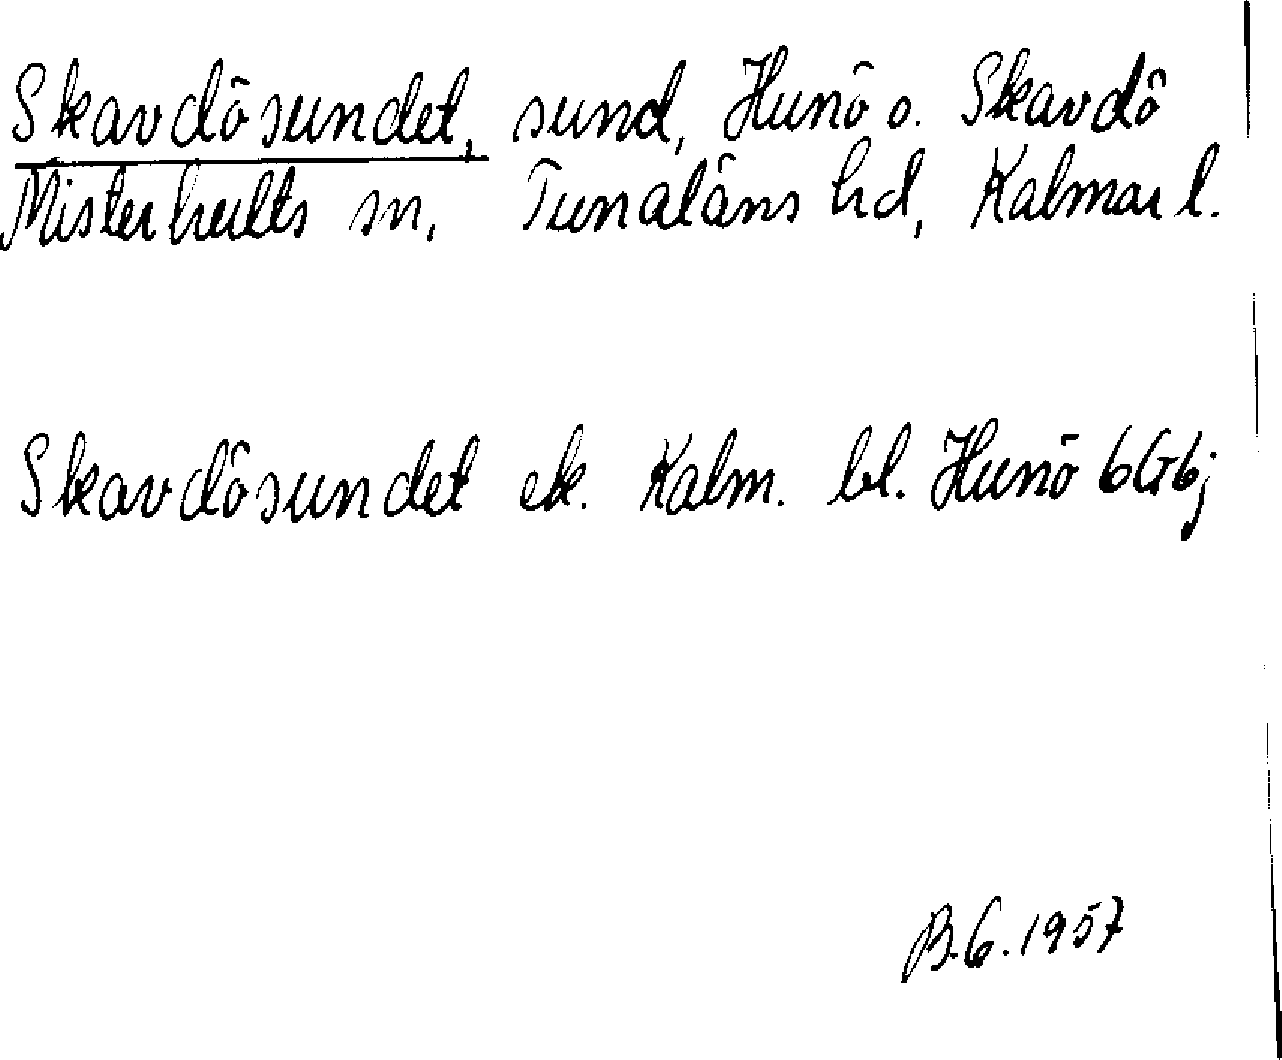 Skavdösundet, sund, Hunö o. Skavdö
Misterhults sn, Tunaläns hd, Kalmar l.
Skavdösundet ek. Kalm. bl. Hunö 6G6j
B.G. 1957